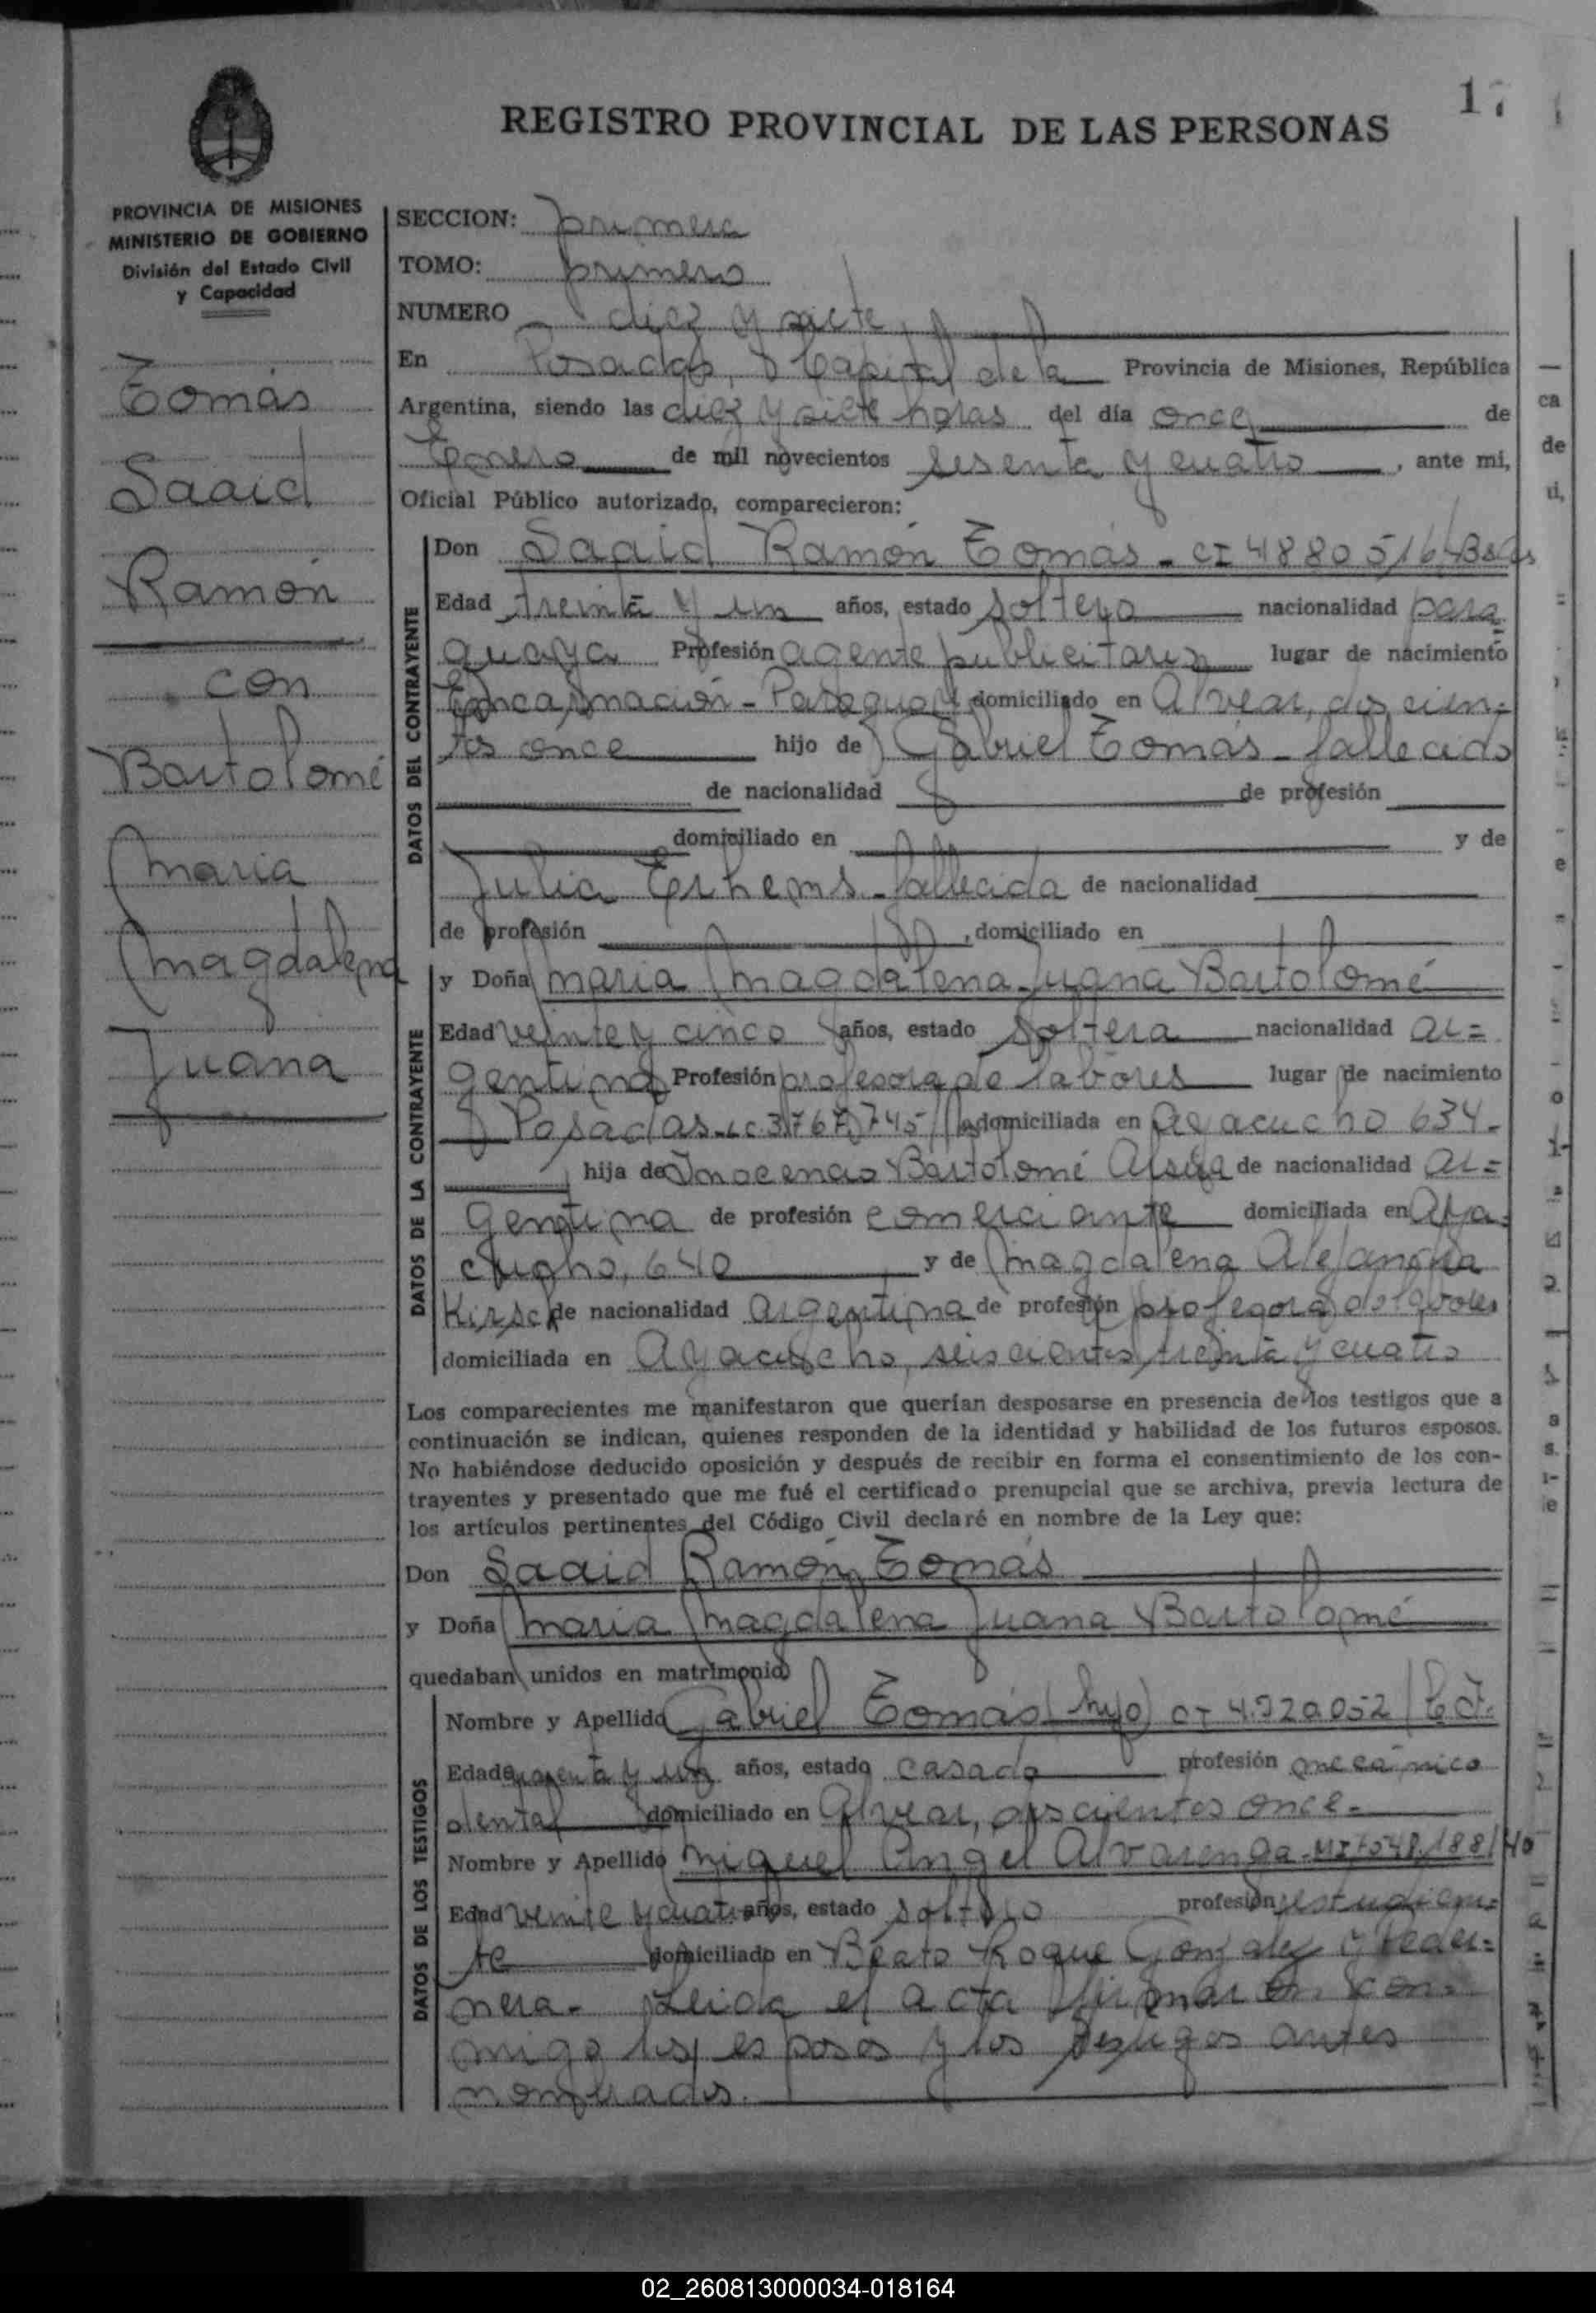 17
REGISTRO PROVINCIAL DE LAS PERSONAS
PROVINCIA DE MISIONES
MINISTERIO DE GOBIERNO
División del Estado Civil
y Capacidad
Tomás
Saaid
Ramón
con
Bartolomé
Maria
Magdalena
Juana
SECCION: primera
TOMO: primero
NUMERO diez y siete
En Posadas, Capital de la Provincia de Misiones, República
Argentina, siendo las diez y siete horas del día once de
Enero de mil novecientos sesenta y cuatro, ante mi,
Oficial Público autorizado, comparecieron:
DATOS DEL CONTRAYENTE
Don Saaid Ramón Tomás - CI 4880516/BsAs
Edad treinta y un años, estado soltero nacionalidad para=
guaya Profesión agente publicitario lugar de nacimiento
Encarnación - Paraguay domiciliado en Alvear, doscien=
tos once hijo de Gabriel Tomás - fallecido
de nacionalidad de profesión
domiciliado en y de
Julia fallecida de nacionalidad
de profesión , domiciliado en
DATOS DE LA CONTRAYENTE
y Doña Maria Magdalena Juana Bartolomé
Edad veinte y cinco años, estado soltera nacionalidad ar=
gentina Profesión profesora de labores lugar de nacimiento
Posadas - LC. 3.767.745 domiciliada en Ayacucho 634 -
hija de Inocencio Bartolomé Alsina de nacionalidad ar=
gentina de profesión comerciante domiciliada en Aya=
cucho, 640 y de Magdalena Alejandra
Kirsch de nacionalidad argentina de profesión profesora de labores
domiciliada en Ayacucho, seiscientos treinta y cuatro
Los comparecientes me manifestaron que querían desposarse en presencia de los testigos que a
continuación se indican, quienes responden de la identidad y habilidad de los futuros esposos.
No habiéndose deducido oposición y después de recibir en forma el consentimiento de los con-
trayentes y presentado que me fué el certificado prenupcial que se archiva, previa lectura de
los artículos pertinentes del Código Civil declaré en nombre de la Ley que:
Don Saaid Ramón Tomás
y Doña Maria Magdalena Juana Bartolomé
quedaban unidos en matrimonio
DATOS DE LOS TESTIGOS
Nombre y Apellido Gabriel Tomás (hijo) CI 4.920.052
Edad cuarenta y un años, estado casado profesión mecánico
dental domiciliado en Alvear, doscientos once -
Nombre y Apellido Miguel Angel Alvarenga - MI 7548188
Edad veinte y cuatro años, estado soltero profesión estudian=
te domiciliado en Beato Roque Gonzalez y Peder=
nera - Leida el acta firmaron con=
migo los esposos y los testigos antes
nombrados.
02_260813000034-018164